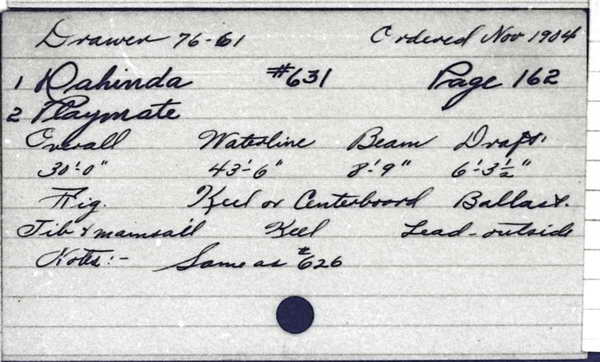 Drawer 76-61 Ordered Nov 1904
1 Dahinda #631 Page 162
2 Playmate
Overall Waterline Beam Draft.
30'-0" 43'-6" 8'-9" 6'-3½"
Rig. Keel or Centerboard Ballast.
Jib & mainsail Keel Lead-outside
Notes:- Same as #626